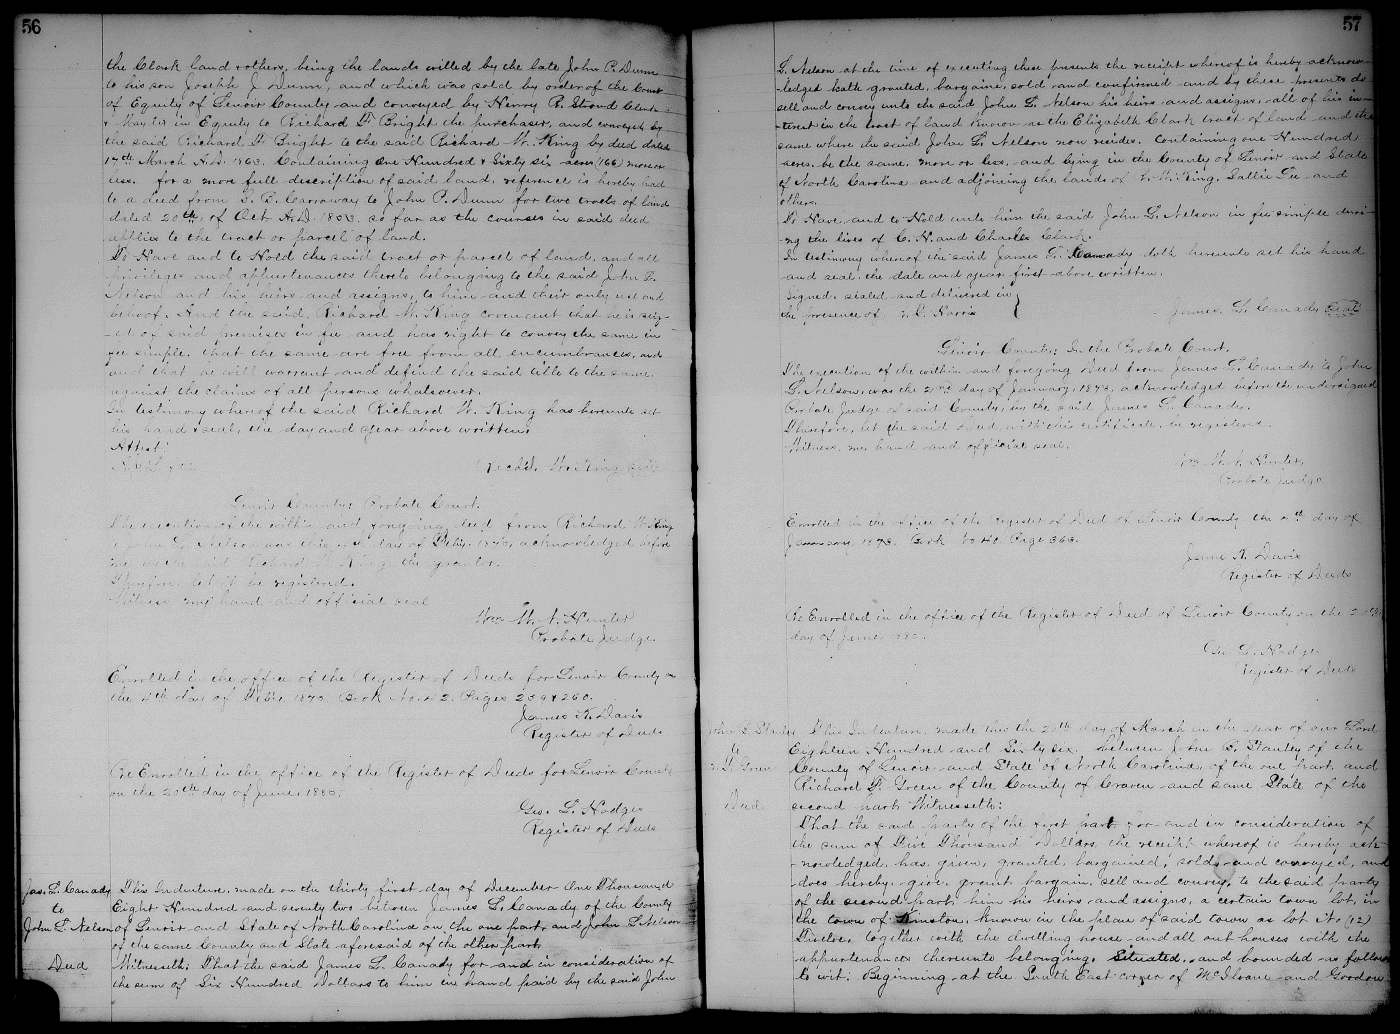 56
the Clark land & others, being the lands willed by the late John P. Dunn
to his son Joseph J. Dunn, and which was sold by order of the Court
of Equity of Lenoir County and conveyed by Henry R. Stroud Clerk
& Master in Equity to Richard H. Bright the purchaser, and conveyed by
the said Richard H Bright to the said Richard W. King by deed dated
17th March A.D. 1863. Containing One Hundred & Sixty six acres (166) more or
less. for a more full description of said land reference is hereby had
to a deed from Carraway to John P. Dunn for two tracts of land
dated 20th of Oct A.D. so far as the courses in said deed
applies to the tract or parcel of land.
To Have and to Hold the said tract or parcel of land, and all
privileges and appurtenances thereto belonging to the said John L.
Nelson and his heirs and assigns, to him and their only use and
behoof. And the said, Richard W. King covenant that he is seiz-
-ed of said premises in fee and has right to convey the same in
fee simple, that the same are free from all encumbrances, and
and that he will warrant and defend the said title to the same
against the claims of all persons whatsoever.
In testimony whereof the said Richard W. King has hereunto set
his hand & seal, the day and year above written.
Attest;
Richd. W. King Seal
Lenoir County; Probate Court.
The execution of the within and foregoing deed from Richard W. King
John L. Nelson was this day of 1873, acknowledged before
me by the said Richard W. King the grantor.
Therefore let it be registered.
Witness my hand and official seal
Wm W. N. Hunter
Probate Judge.
Enrolled in the office of the Register of Deeds for Lenoir County on
the 4th day of 1873 Book No. 42. Pages 259 & 260.
James N. Davis
Register of Deeds
Re Enrolled in the office of the Register of Deeds for Lenoir County
on the 20th day of June, 1880.
Geo. L. Hodges
Register of Deeds
Jas. L. Canady
to
John L. Nelson
Deed
This Indenture, made on the thirty first day of December One Thousand
Eight Hundred and seventy two between James L. Canady of the County
of Lenoir and State of North Carolina on the one part, and John L. Nelson
of the same County and State aforesaid of the other part
Witnesseth; That the said James L. Canady for and in consideration of
the sum of Six Hundred Dollars to him in hand paid by the said John
57
L. Nelson at the time of executing these presents the receipt whereof is hereby acknow-
-ledged hath granted, bargained, sold and confirmed and by these presents do
sell and convey unto the said John L. Nelson his heirs and assigns, all of his in-
-terest in the tract of land known as the Elizabeth Clark tract of land and the
same where the said John L. Nelson now resides. Containing one Hundred
acres. be the same, more or less. and lying in the County of Lenoir and State
of North Carolina and adjoining the lands of W. King, Sallie and
others.
To Have, and to Hold unto him the said John L. Nelson in fee simple duri-
-ng the lives of C. N. and Charles Clark.
In testimony whereof the said James L. Canady doth hereunto set his hand
and seal, the date and year first above written.
Signed, sealed and delivered in
the presence of Harris
James L. Canady Seal
Lenoir County; In the Probate Court.
The execution of the within and foregoing Deed from James L. Canady to John
L. Nelson, was the 2nd day of January, 1873, acknowledged before the undersigned
Probate Judge of said County, by the said James L. Canady.
Therefore, let the said deed with this certificate, be registered.
Witness, my hand and official seal.
Wm W. N. Hunter,
Probate Judge
Enrolled in the office of the Register of Deed of Lenoir County the day of
January 1873. Book No 40 Page 363.
James N. Davis
Register of Deeds
Re Enrolled in the office of the Register of Deed of Lenoir County on the
day of June 1880.
Geo. L. Hodges
Register of Deeds
John C. Stanley
to
R. D. Green
Deed
This Indenture, made this the 20th day of March in the year of our Lord
Eighteen Hundred and Sixty six, between John C. Stanley of the
County of Lenoir and State of North Carolina, of the one part, and
Richard D. Green of the County of Craven and same State of the
second part Witnesseth:
That the said party of the first part for and in consideration of
the sum of Five Thousand Dollars, the receipt whereof is hereby ack-
-nowledged, has given, granted, bargained, sold, and conveyed, and
does hereby give, grant, bargain, sell and convey, to the said party
of the second part, him his heirs and assigns, a certain town lot, in
the town of Kinston, known in the plan of said town as lot No (12)
Twelve, together with the dwelling house and all out houses with the
appurtenances thereunto belonging, Situated, and bounded as follows
to wit: Beginning at the South East corner of McIlwane and Gordon